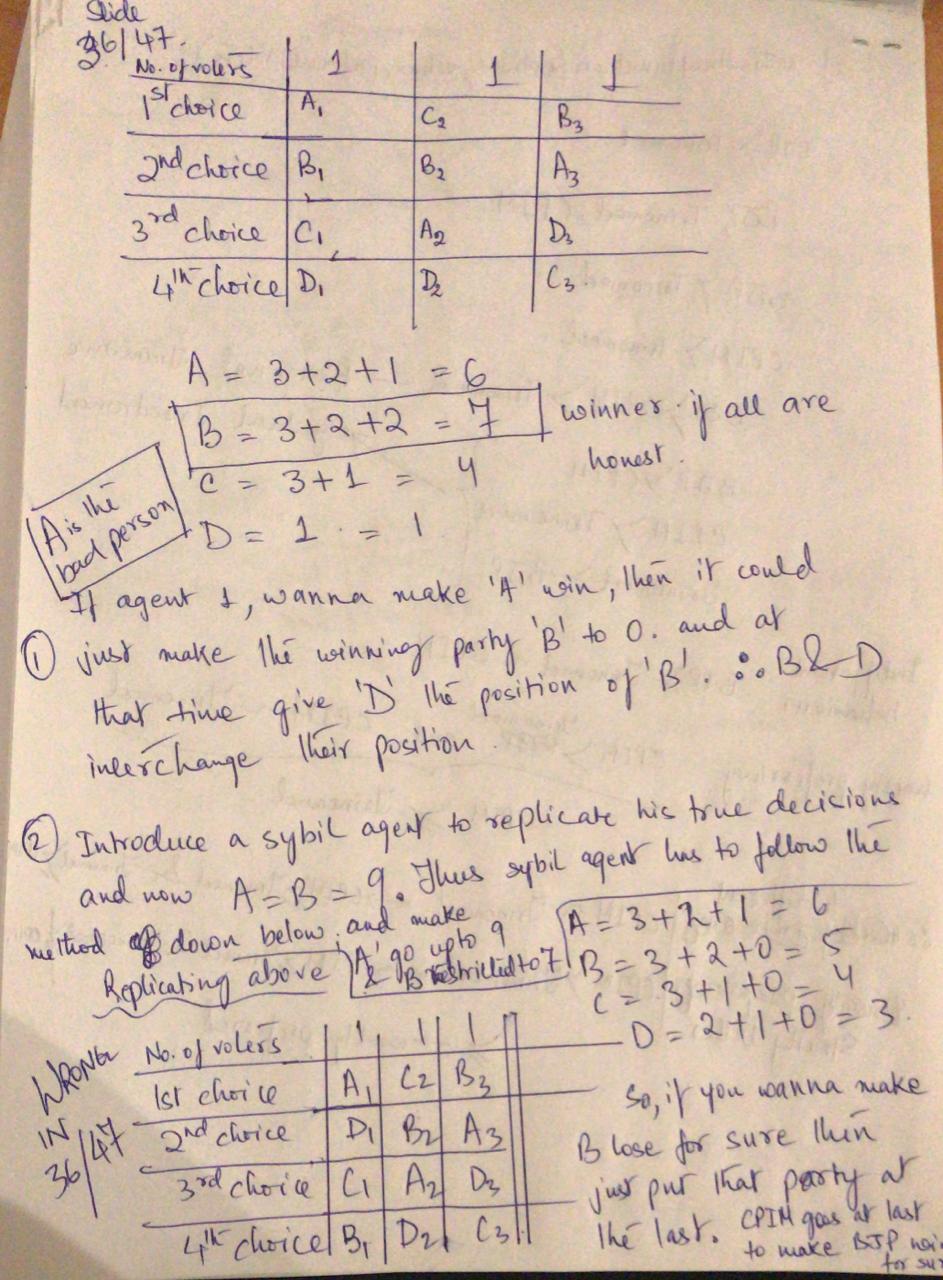 Slide
36/47.
No. of voters 1 1 1
1st choice A1 C2 B3
2nd choice B1 B2 A3
3rd choice C1 A2 D3
4th choice D1 D2 C3
A = 3+2+1 = 6
B = 3+2+2 = 7 winner if all are honest.
C = 3+1 = 4
D = 1 = 1
A is the
bad person
If agent 1, wanna make 'A' win, then it could
① just make the winning party 'B' to 0. and at
that time give 'D' the position of 'B'. ∴ B & D
interchange their position.
② Introduce a sybil agent to replicate his true decisions
and now A=B=9. Thus sybil agent has to follow the
method of down below, and make
'A' go upto 9
& B restricted to 7
Replicating above
A = 3+2+1 = 6
B = 3+2+0 = 5
C = 3+1+0 = 4
D = 2+1+0 = 3.
WRONG
IN
36/47
No. of voters 1 1 1
1st choice A1 C2 B3
2nd choice D1 B2 A3
3rd choice C1 A2 D3
4th choice B1 D2 C3
So, if you wanna make
B lose for sure then
just put that party at
the last. CPIM goes at last
to make BJP
for